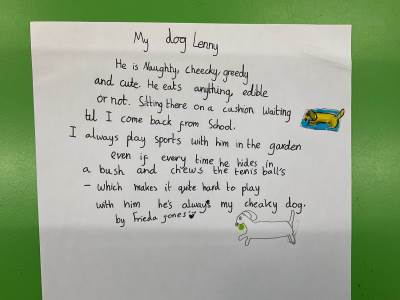 My dog Lenny
He is Naughty, cheecky, greedy
and cute. He eats anything, edible
or not. Sitting there on a cushion waiting
til I come back from School.
I always play sports with him in the garden
even if every time he hides in
a bush and chews the tenis ball's
- which makes it quite hard to play
with him he's always my cheaky dog.
by Frieda jones